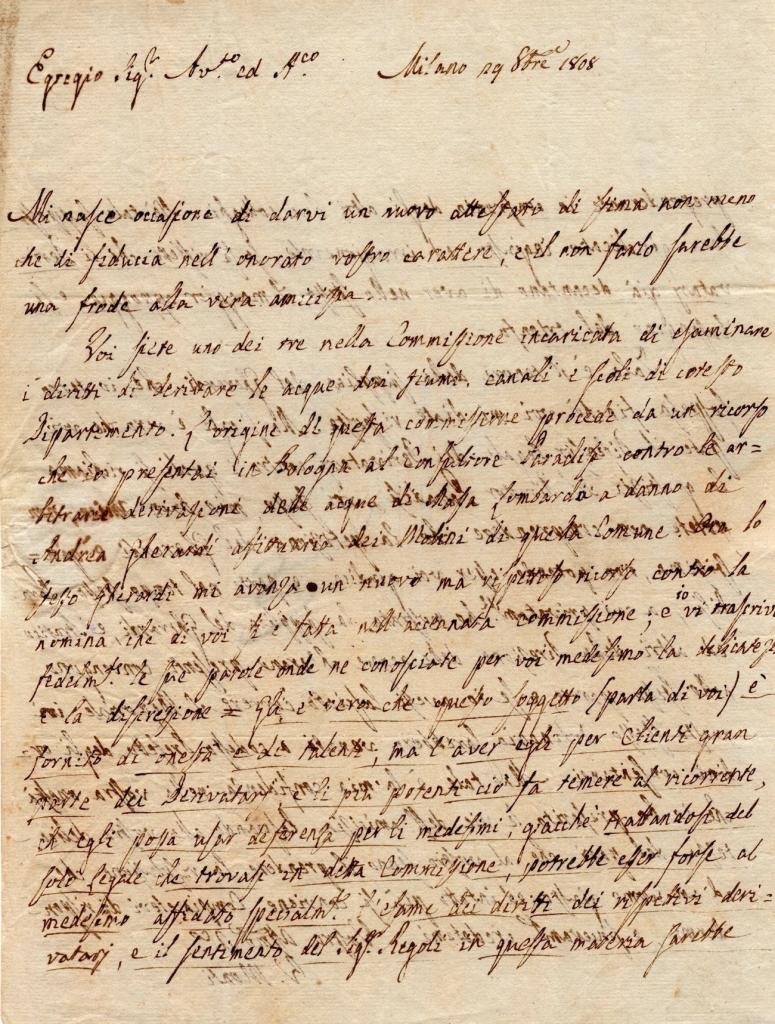 Egregio Sigr. Avv.to ed A.co Milano 29 8bre 1808
Mi nasce occasione di darvi un nuovo attestato di stima non meno
che di fiducia nell'onorato vostro carattere, e il non farlo sarebbe
una frode alla vera amicizia.
Voi siete uno dei tre nella Commissione incaricata di esaminare
i diritti di derivare le acque da fiumi, canali e scoli di cotesto
Dipartimento. L'origine di questa commissione procede da un ricorso
che io presentai in Bologna al Consultore Paradisi contro le ar-
bitrarie derivazioni delle acque di Massa Lombarda a danno di
Andrea Gherardi affittuario dei Molini di quella Comune. Ora lo
stesso Gherardi mi avanza un nuovo ma rispettoso ricorso contro la
nomina, che di voi si è fatta nell'accennata commissione; e io vi trascrivo
fedelmte. le sue parole onde ne conosciate per voi medesimo la delicatezza
e la discrezione = Egli è vero che questo soggetto (parla di voi) è
fornito di onestà e di talenti, ma l'aver egli per clienti gran
parte dei Derivatarj, e li più potenti ciò fa temere al ricorrente,
ch'egli possa usar deferenza per li medesimi, giacché trattandosi del
solo Legale che trovasi in detta Commissione, potrebbe esser forse al
medesimo affidato specialmte. l'esame dei diritti dei rispettivi deri-
vatarj, e il sentimento del Sigr. Regoli in questa materia sarebbe